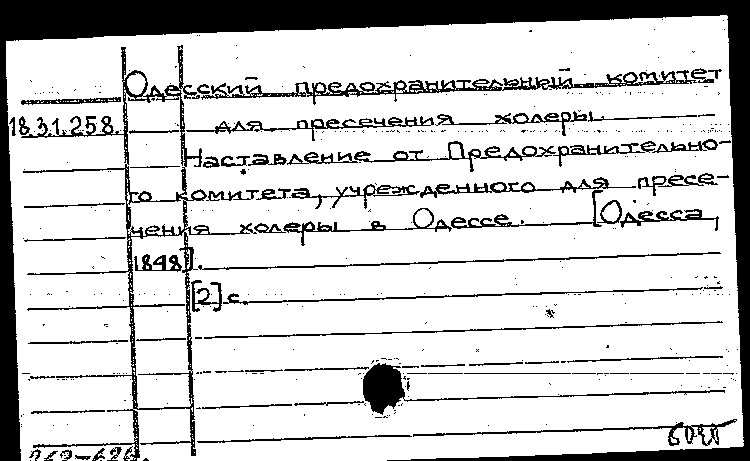 Одесский предохранительный комитет
18.31.258. для пресечения холеры.
Наставление от Предохранительно-
го комитета, учрежденного для пресе-
чения холеры в Одессе. [Одесса,
1848].
[2] с.